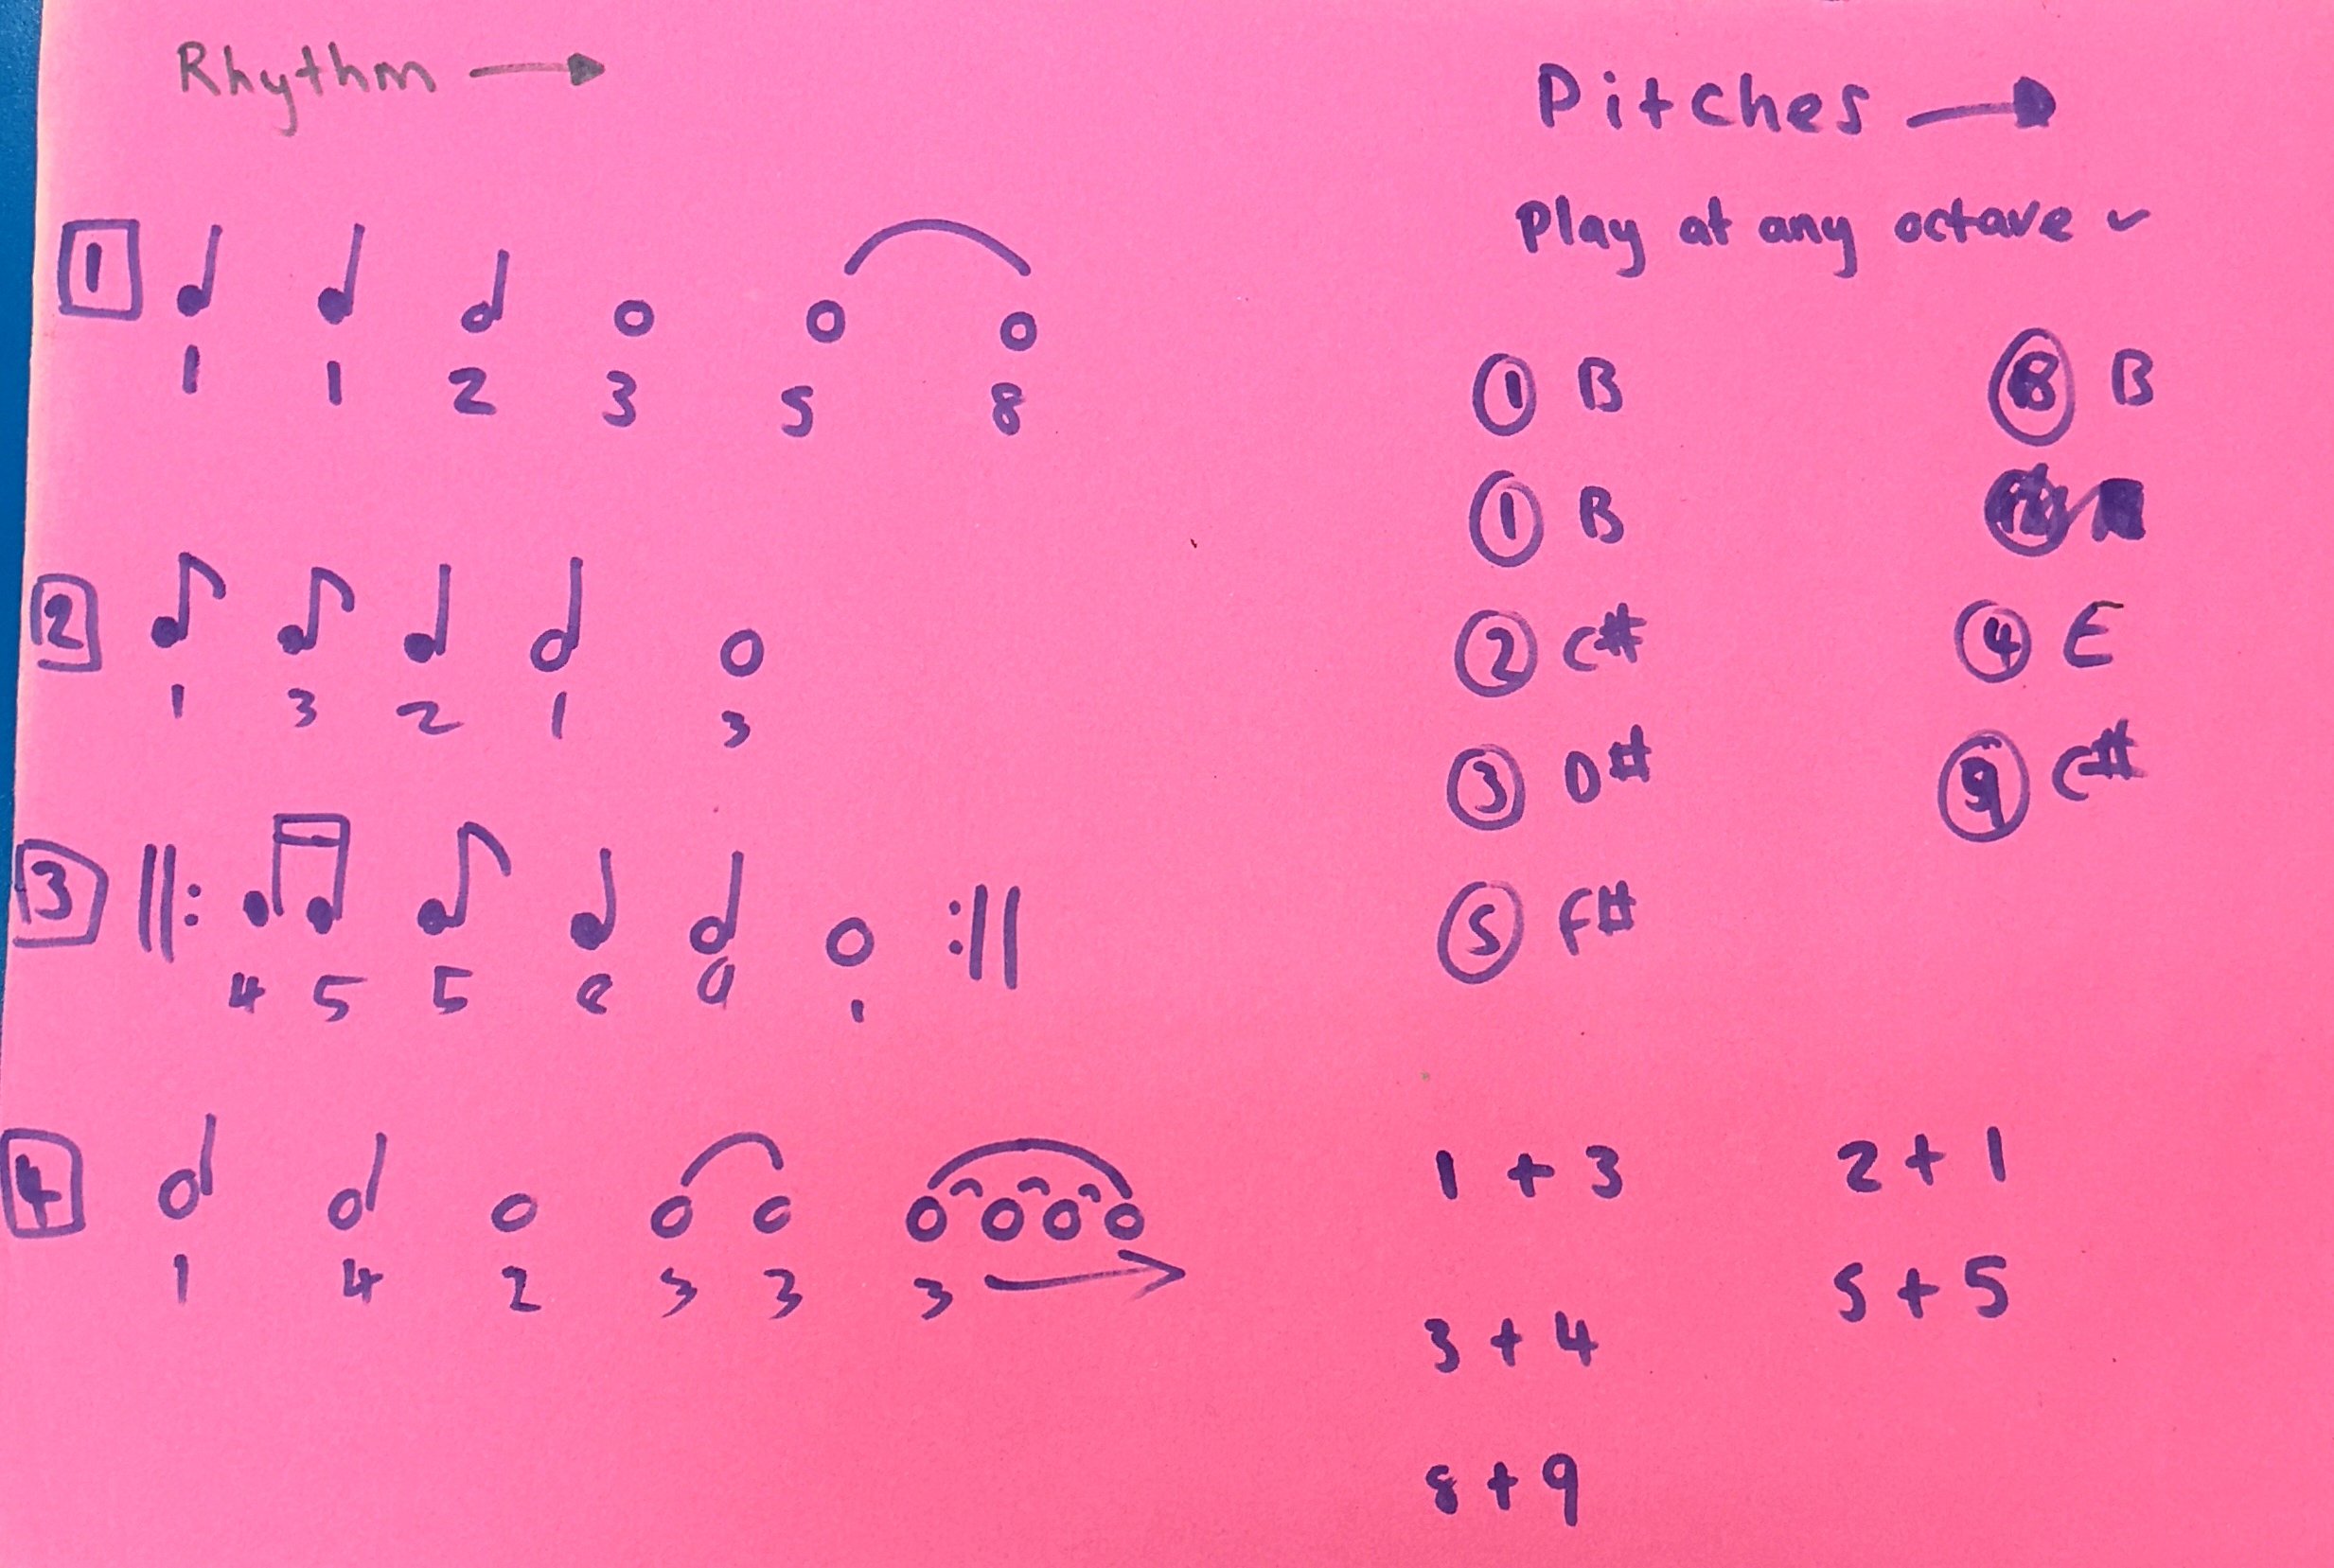 Rhythm
1
1 1 2 3 5 8
2
1 3 2 1 3
3
4 5 5 8 9 1
4
1 4 2 3 3 3
Pitches
Play at any octave
1 B
1 B
2 C#
3 D#
5 F#
8 B
4 E
9 C#
1 + 3
3 + 4
8 + 9
2 + 1
5 + 5